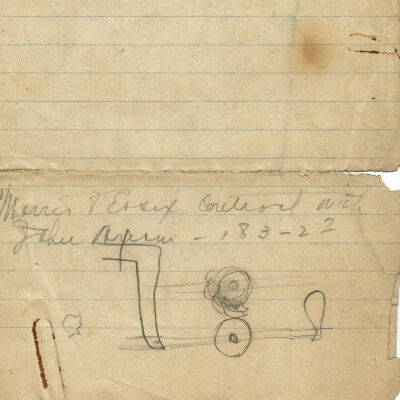 Morris & Essex Contract with
John - 183-22